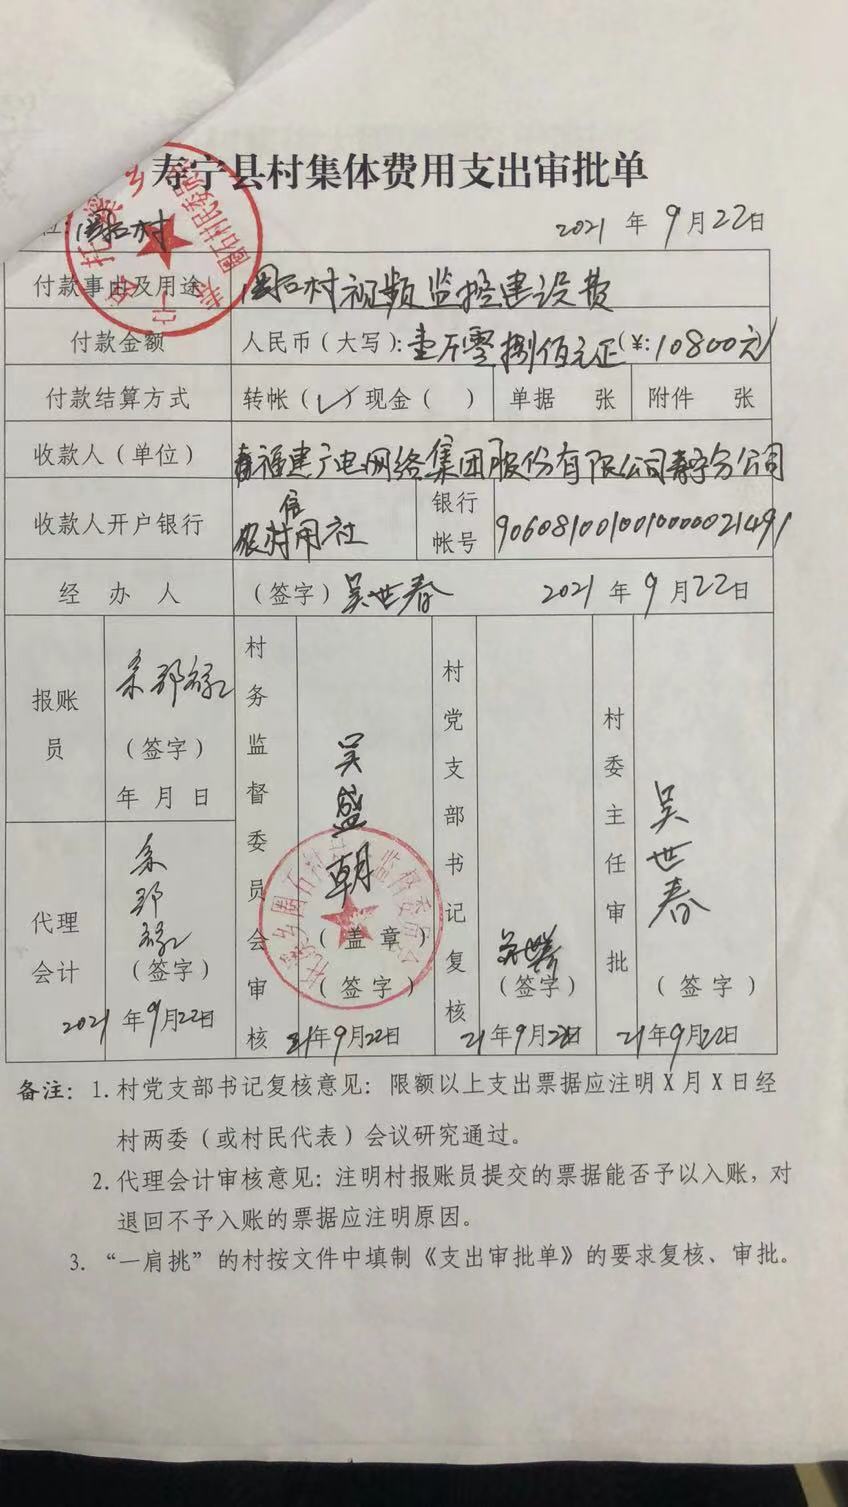 寿宁县村集体费用支出审批单
位: 围石村 2021年9月22日
付款事由及用途 围石村视频监控建设费
付款金额 人民币（大写）: 壹万零捌佰元正(¥:10800元)
付款结算方式 转帐（✓）现金（ ） 单据 张 附件 张
收款人（单位） 福建广电网络集团股份有限公司寿宁分公司
收款人开户银行 农村信用社 银行帐号 9060810010010000021491
经办人 （签字）吴世春 2021年9月22日
报账员
（签字）
年 月 日
代理会计
（签字）
2021年9月22日
村务监督委员会审核
吴盛朝
（盖章）
（签字）
21年9月22日
村党支部书记复核
（签字）
21年9月22日
村委主任审批
吴世春
（签字）
21年9月22日
备注: 1. 村党支部书记复核意见: 限额以上支出票据应注明X月X日经
村两委（或村民代表）会议研究通过。
2. 代理会计审核意见: 注明村报账员提交的票据能否予以入账, 对
退回不予入账的票据应注明原因。
3. “一肩挑”的村按文件中填制《支出审批单》的要求复核、审批。